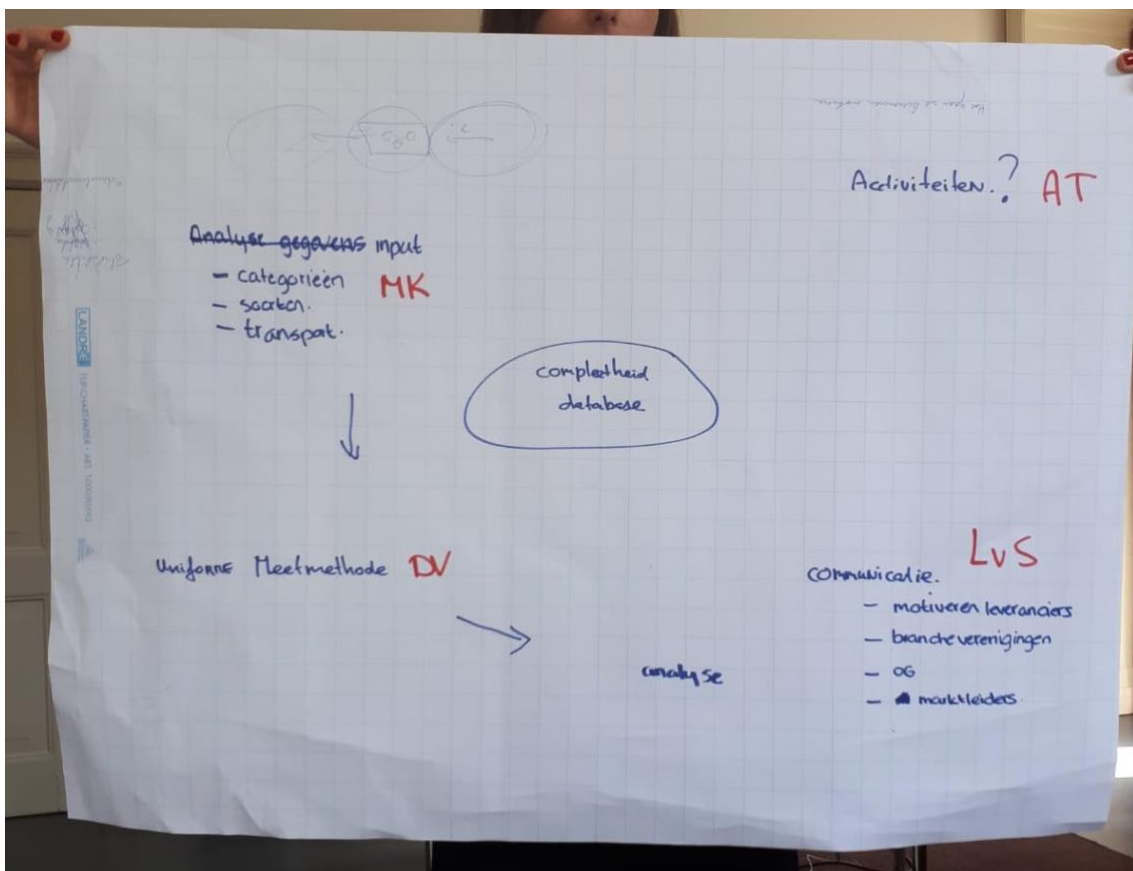 Activiteiten.? AT
Analyse gegevens input
- categorieën MK
- soorten.
- transpat.
compleetheid
database
Uniforme Meetmethode DV
LvS
communicatie.
- motiveren leveranciers
- brancheverenigingen
- OG
- marktleiders
analyse
LANDRÉ